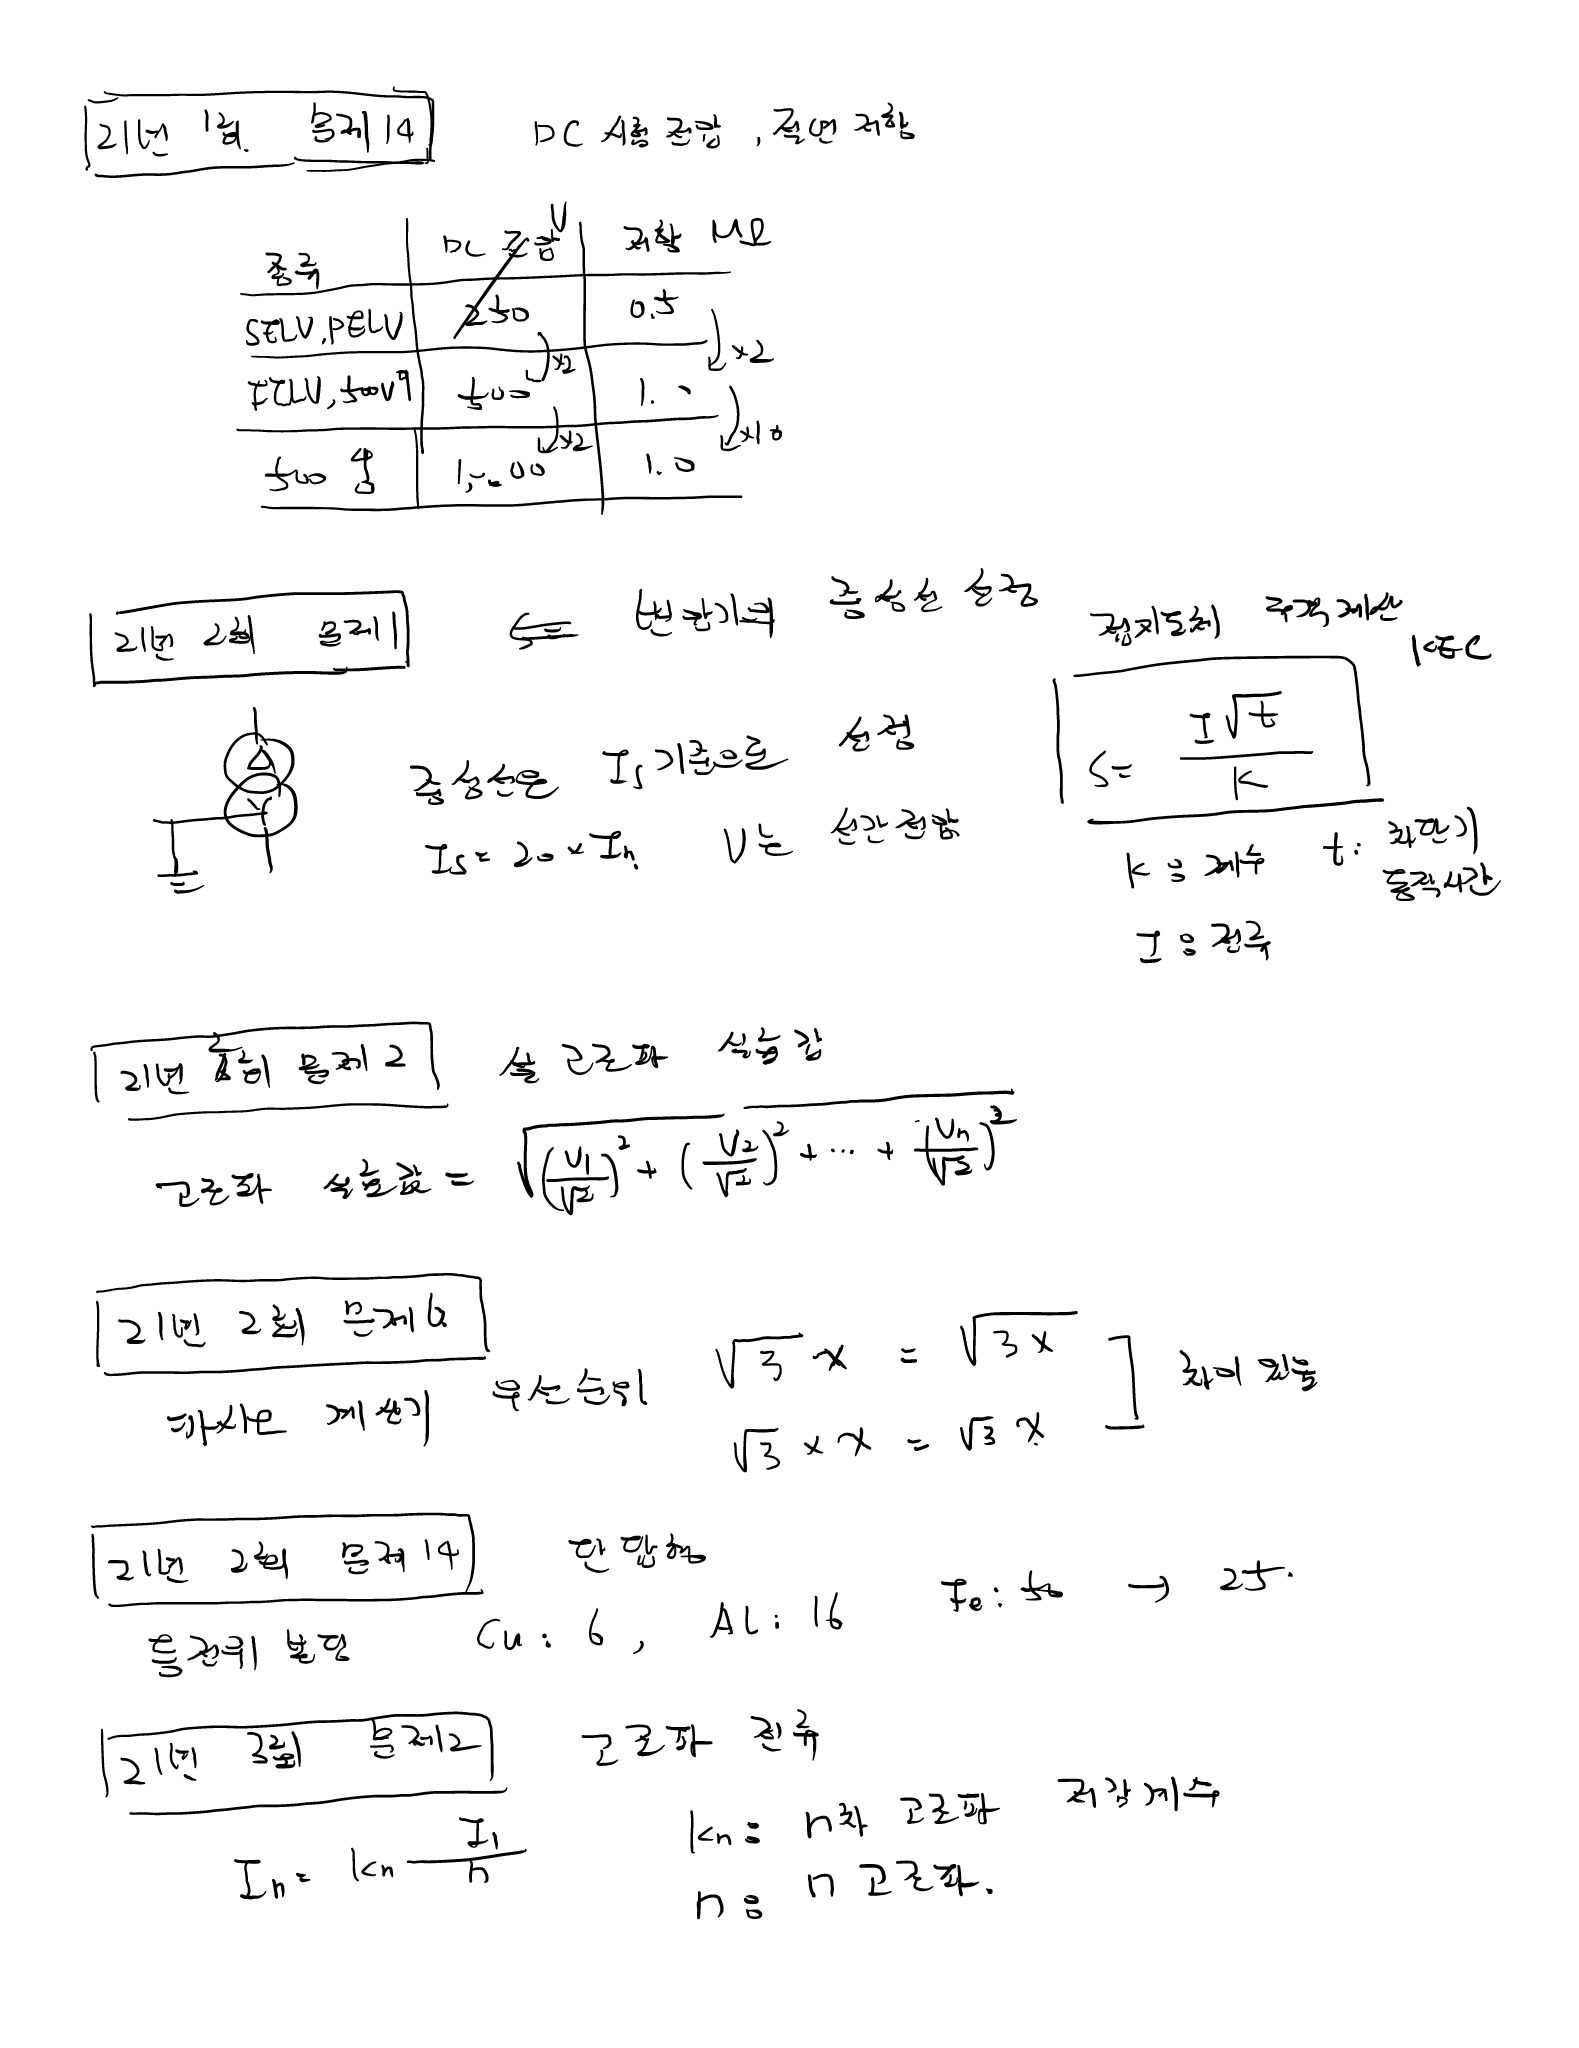 21년 1회. 문제 14
DC 시험 전압, 절연 저항
종류 DC 전압 V 저항 MΩ
SELV, PELV 250 0.5
×2 ×2
FELV, 500V이 500 1.0
×2 ×10
500 넘 1,000 1.0
21년 2회 문제 1
변압기의 중성선 선정
접지도체 규격 계산
KEC
S = I√t / K
중성선은 Is 기준으로 선정
Is = 20 × In V는 선간전압
K : 계수 t : 차단기
동작시간
I : 전류
21년 2회 문제 2
고조파 실효값
고조파 실효값 = √((V1/√2)² + (V2/√2)² + ··· + (Vn/√2)²)
21년 2회 문제 6
카시오 계산기 우선순위
√3 x = √3x
√3 × x = √3 x
차이 있음
21년 2회 문제 14
단답형
등전위 본딩 Cu : 6, Al : 16 Fe : 50 → 25.
21년 3회 문제 2
고조파 전류
In = kn I1 / n
kn : n차 고조파 저감계수
n : n 고조파.